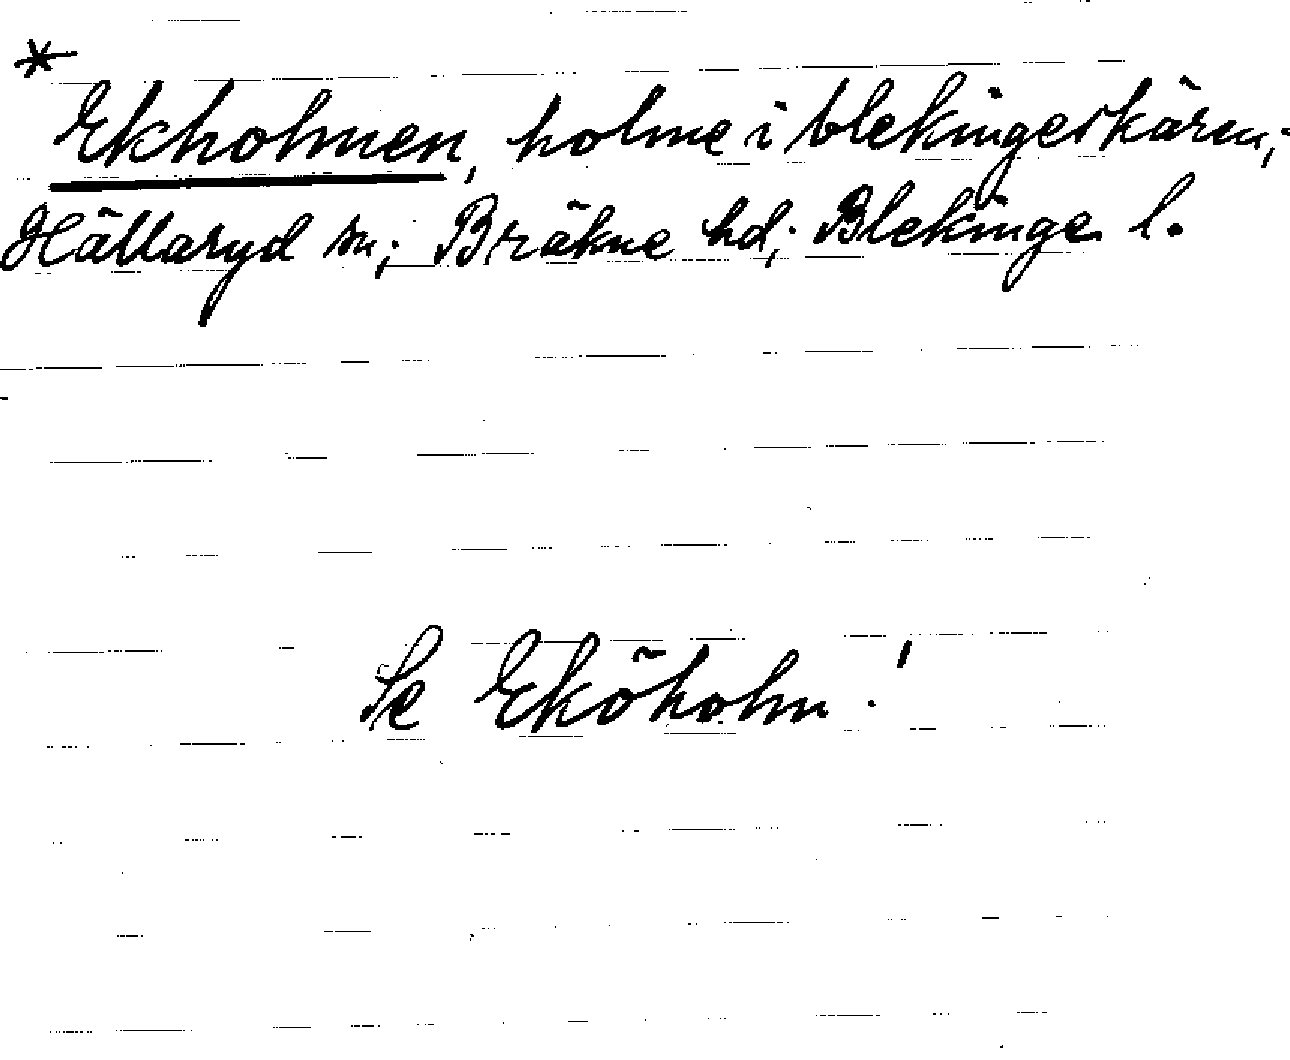 *
Ekholmen, holme i blekingeskären;
Hällaryd sn; Bräkne hd; Blekinge l.
Se Eköholm!